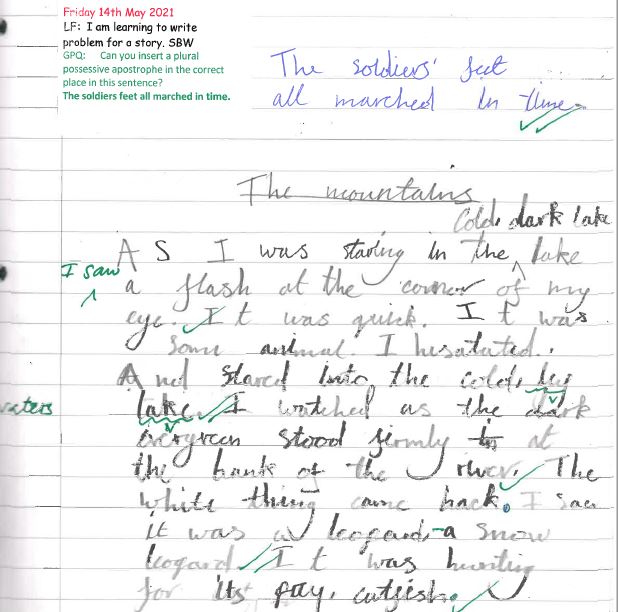 Friday 14th May 2021
LF: I am learning to write
problem for a story. SBW
GPQ: Can you insert a plural
possessive apostrophe in the correct
place in this sentence?
The soldiers feet all marched in time.
The soldiers' feet
all marched in time.
The mountains
Cold, dark lake
AS I was staring in the lake
I saw
a flash at the corner of my
eye. It was quick. It was
some animal. I hesatated.
And stared into the cold, icy
waters
lake. I watched as the dark
evergreen stood firmly to at
the bank of the river. The
white thing came back. I saw
it was a leopard-a snow
leopard. It was hunting
for its pray, catfish.